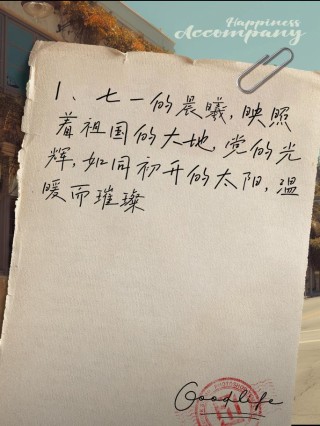 Happiness
Accompany
1、七一的晨曦,映照
着祖国的大地,党的光
辉,如同初升的太阳,温
暖而璀璨
Goodlife